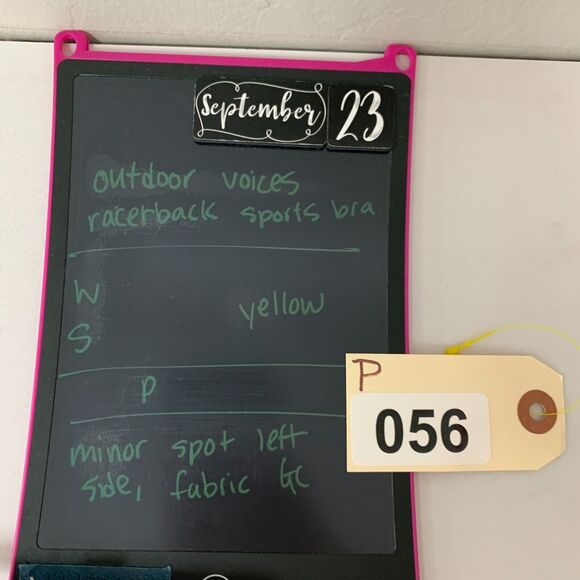 September 23
outdoor voices
racerback sports bra
W
yellow
S
P
P
056
minor spot left
side, fabric GC